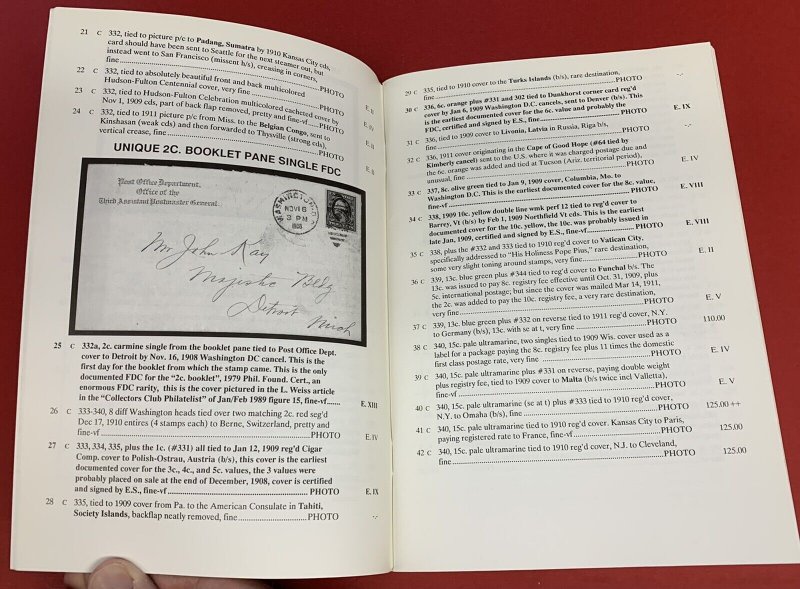 21 C 332, tied to picture p/c to Padang, Sumatra by 1910 Kansas City cds,
card should have been sent to Seattle for the next steamer out, but
instead went to San Francisco (missent h/s), creasing in corners,
fine.....PHOTO
22 C 332, tied to absolutely beautiful front and back multicolored
Hudson-Fulton Centennial cover, very fine.....PHOTO E. II
23 C 332, tied to Hudson-Fulton Celebration multicolored cacheted cover by
Nov 1, 1909 cds, part of back flap removed, pretty and fine-vf.....PHOTO E. IV
24 C 332, tied to 1911 picture p/c from Miss. to the Belgian Congo, sent to
Kinshasan (weak cds) and then forwarded to Thysville (strong cds),
vertical crease, fine.....PHOTO E. II
UNIQUE 2C. BOOKLET PANE SINGLE FDC
Post Office Department,
Office of the
Third Assistant Postmaster General.
WASHINGTON, D.C.
NOV 16
3 PM
1908
Mr John Kay
Majestic Bldg
Detroit
Mich
25 C 332a, 2c. carmine single from the booklet pane tied to Post Office Dept.
cover to Detroit by Nov. 16, 1908 Washington DC cancel. This is the
first day for the booklet from which the stamp came. This is the only
documented FDC for the "2c. booklet", 1979 Phil. Found. Cert., an
enormous FDC rarity, this is the cover pictured in the L. Weiss article
in the "Collectors Club Philatelist" of Jan/Feb 1989 figure 15, fine-vf...... E. XIII
26 C 333-340, 8 diff Washington heads tied over two matching 2c. red seg'd
Dec 17, 1910 entires (4 stamps each) to Berne, Switzerland, pretty and
fine-vf.....PHOTO E. IV
27 C 333, 334, 335, plus the 1c. (#331) all tied to Jan 12, 1909 reg'd Cigar
Comp. cover to Polish-Ostrau, Austria (b/s), this cover is the earliest
documented for the 3c., 4c., and 5c. values, the 3 values were
probably placed on sale at the end of December, 1908, cover is certified
and signed by E.S., fine-vf.....PHOTO E. IX
28 C 335, tied to 1909 cover from Pa. to the American Consulate in Tahiti,
Society Islands, backflap neatly removed, fine.....PHOTO
29 C 335, tied to 1910 cover to the Turks Islands (b/s), rare destination,
fine.....PHOTO
30 C 336, 6c. orange plus #331 and 302 tied to Dunkhorst corner card reg'd
cover by Jan 6, 1909 Washington D.C. cancels, sent to Denver (b/s). This
is the earliest documented cover for the 6c. value and probably the
FDC, certified and signed by E.S., fine.....PHOTO E. IX
31 C 336, tied to 1909 cover to Livonia, Latvia in Russia, Riga b/s,
fine.....PHOTO
32 C 336, 1911 cover originating in the Cape of Good Hope (#64 tied by
Kimberly cancel) sent to the U.S. where it was charged postage due and
the 6c. orange was added and tied at Tucson (Ariz. territorial period),
unusual, fine.....PHOTO E. IV
33 C 337, 8c. olive green tied to Jan 9, 1909 cover, Columbia, Mo. to
Washington D.C. This is the earliest documented cover for the 8c. value,
fine-vf.....PHOTO E. VIII
34 C 338, 1909 10c. yellow double line wmk perf 12 tied to reg'd cover to
Barrey, Vt (b/s) by Feb 1, 1909 Northfield Vt cds. This is the earliest
documented cover for the 10c. yellow, the 10c. was probably issued in
late Jan, 1909, certified and signed by E.S., fine-vf.....PHOTO E. VIII
35 C 338, plus the #332 and 333 tied to 1910 reg'd cover to Vatican City,
specifically addressed to "His Holiness Pope Pius," rare destination,
some very slight toning around stamps, very fine.....PHOTO E. II
36 C 339, 13c. blue green plus #344 tied to reg'd cover to Funchal b/s. The
13c. was issued to pay 8c. registry fee effective until Oct. 31, 1909, plus
5c. international postage; but since the cover was mailed Mar 14, 1911,
the 2c. was added to pay the 10c. registry fee, a very rare destination,
very fine.....PHOTO E. V
37 C 339, 13c. blue green plus #332 on reverse tied to 1911 reg'd cover, N.Y.
to Germany (b/s), 13c. with se at t, very fine.....PHOTO 110.00
38 C 340, 15c. pale ultramarine, two singles tied to 1909 Wis. cover used as a
label for a package paying the 8c. registry fee plus 11 times the domestic
first class postage rate, very fine.....PHOTO E. IV
39 C 340, 15c. pale ultramarine plus #331 on reverse, paying double weight
plus registry fee, tied to 1909 cover to Malta (b/s twice incl Valletta),
fine-vf.....PHOTO E. V
40 C 340, 15c. pale ultramarine (se at t) plus #333 tied to 1910 reg'd cover,
N.Y. to Omaha (b/s), fine.....PHOTO 125.00 ++
41 C 340, 15c. pale ultramarine tied to 1910 reg'd cover. Kansas City to Paris,
paying registered rate to France, fine-vf.....PHOTO 125.00
42 C 340, 15c. pale ultramarine tied to 1910 reg'd cover, N.J. to Cleveland,
fine.....PHOTO 125.00